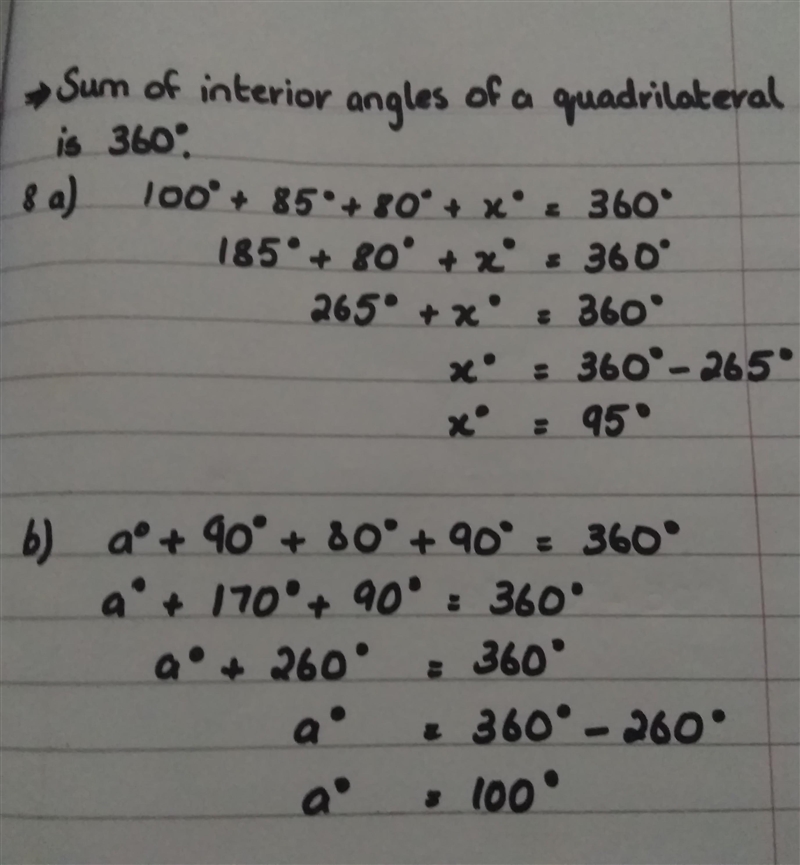 → Sum of interior angles of a quadrilateral
is 360°.
8 a) 100° + 85° + 80° + x° = 360°
185° + 80° + x° = 360°
265° + x° = 360°
x° = 360° - 265°
x° = 95°
b) a° + 90° + 80° + 90° = 360°
a° + 170° + 90° = 360°
a° + 260° = 360°
a° = 360° - 260°
a° = 100°